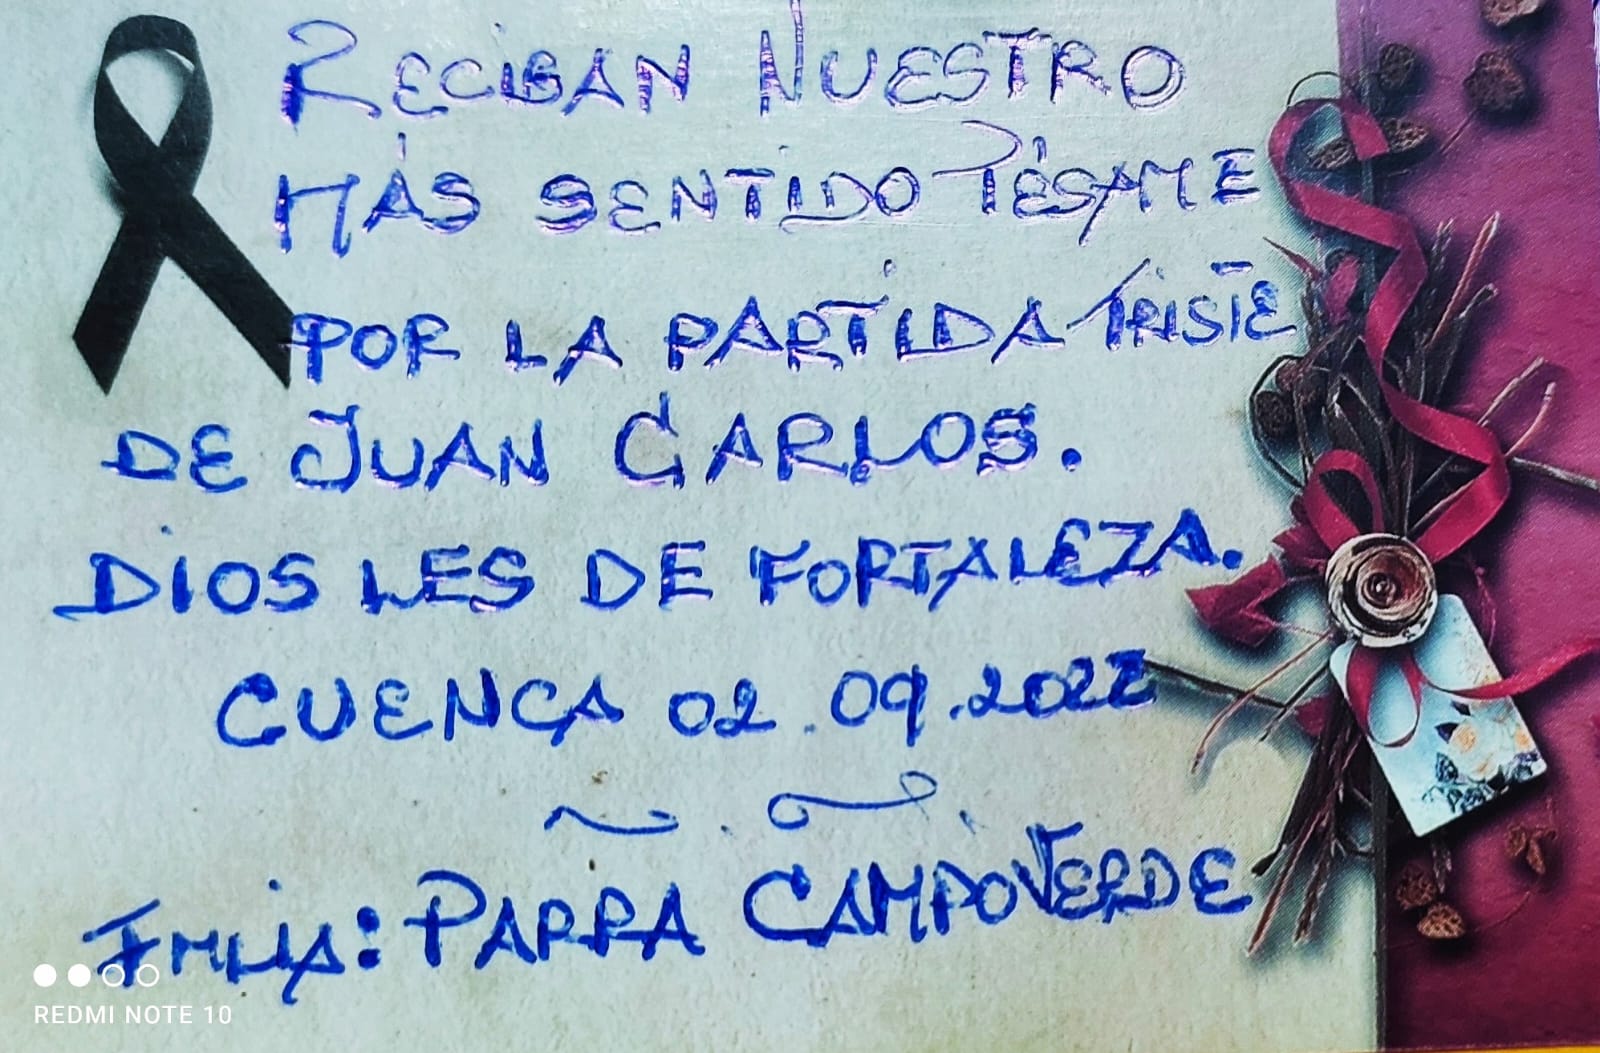 RECIBAN NUESTRO
MÁS SENTIDO PÉSAME
POR LA PARTIDA TRISTE
DE JUAN CARLOS.
DIOS LES DE FORTALEZA.
CUENCA 02.09.2022
FMLIA: PARRA CAMPOVERDE
REDMI NOTE 10